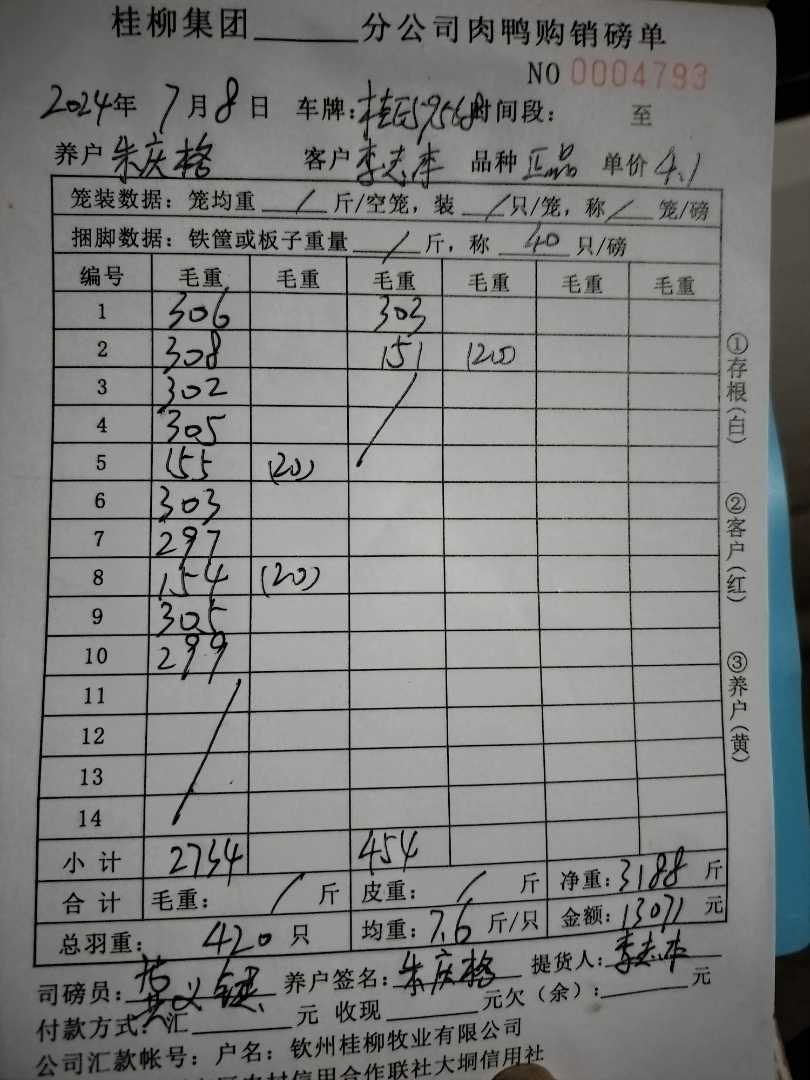 桂柳集团______分公司肉鸭购销磅单
NO 0004793
2024年 7月8日 车牌:桂E59568 时间段: 至
养户 朱庆格 客户 李志本 品种 正品 单价 4.1
笼装数据：笼均重 / 斤/空笼，装 / 只/笼，称 / 笼/磅
捆脚数据：铁筐或板子重量 / 斤，称 40 只/磅
编号 毛重 毛重 毛重 毛重 毛重 毛重
1 306 303
2 308 151 (20)
3 302
4 305
5 155 (20)
6 303
7 297
8 154 (20)
9 305
10 299
11
12
13
14
小计 2734 454
合计 毛重: / 斤 皮重: / 斤 净重: 3188 斤
总羽重: 420 只 均重: 7.6 斤/只 金额: 13071 元
司磅员: 黄义 养户签名: 朱庆格 提货人: 李志本
付款方式: 汇______元 收现______元欠（余）:______元
公司汇款帐号: 户名: 钦州桂柳牧业有限公司
农村信用合作联社大垌信用社
①存根(白)
②客户(红)
③养户(黄)